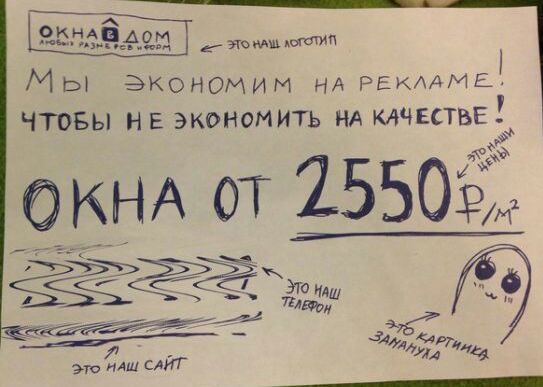 ОКНА В ДОМ
ЛЮБЫХ РАЗМЕРОВ и ФОРМ
ЭТО НАШ ЛОГОТИП
МЫ ЭКОНОМИМ НА РЕКЛАМЕ!
ЧТОБЫ НЕ ЭКОНОМИТЬ НА КАЧЕСТВЕ!
ЭТО НАШИ
ЦЕНЫ
ОКНА ОТ 2550 ₽/м²
ЭТО НАШ
ТЕЛЕФОН
ЭТО КАРТИНКА
ЗАМАНУХА
ЭТО НАШ САЙТ